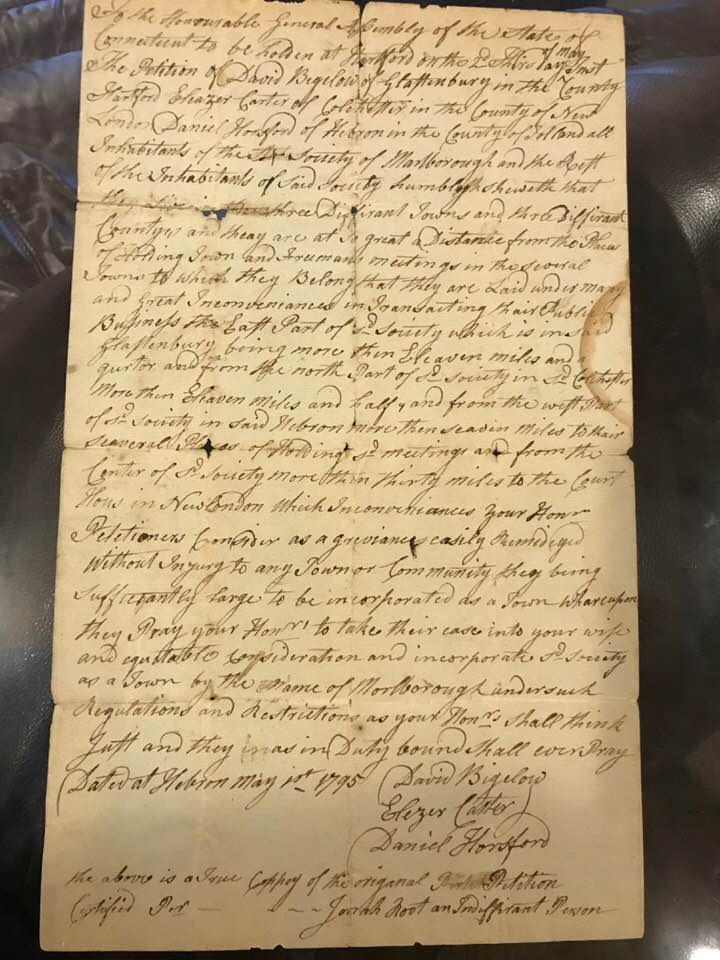 To the Honourable General Assembly of the State of
Connecticut to be holden at Hartford on the 2d Thirs day of may Inst
The Petition of David Bigelow of Glastenbury in the County
Hartford Eleazer Carter of Colchester in the County of New
London Daniel Horsford of Hebron in the County of Tolland all
Inhabitants of the Society of Marlborough and the Rest
of the Inhabitants of said Society humbly sheweth that
they in three Diffirant Towns and three diffirant
Countys and theay are at so great a Distance from the Places
of Holding Town and Freemans meetings in the several
Towns to which they Belong that they are Laid under many
and Great Inconveniances in Transacting thair Public
Business the East Part of sd Society which is in said
Glastenbury being more then Eleaven miles and a
qurtor and from the north Part of sd society in sd Colchester
More then Eleaven miles and half, and from the west Part
of sd society in said Hebron more then seaven miles to thair
seaveral Places of Holding sd meetings and from the
Center of sd society more then thirty miles to the Court
Hous in New London Which Inconveniances your Honrs
Petetioners Consider as a greviance easily Remideyed
Without Injury to any Town or Community they being
sufficantly Large to be incorporated as a Town whareupon
they Pray your Honrs to take their case into your wise
and equitable consideration and incorporate sd Society
as a Town by the Name of Morlborough under such
Regulations and Restrictions as your Honrs shall think
Just and they in as in Duty bound shall ever Pray
Dated at Hebron may 1st 1795 David Bigelow
Elezer Carter
Daniel Horsford
the above is a True Coppey of the origanal Petition
Certified Per Josiah Root an Indiffirant Person